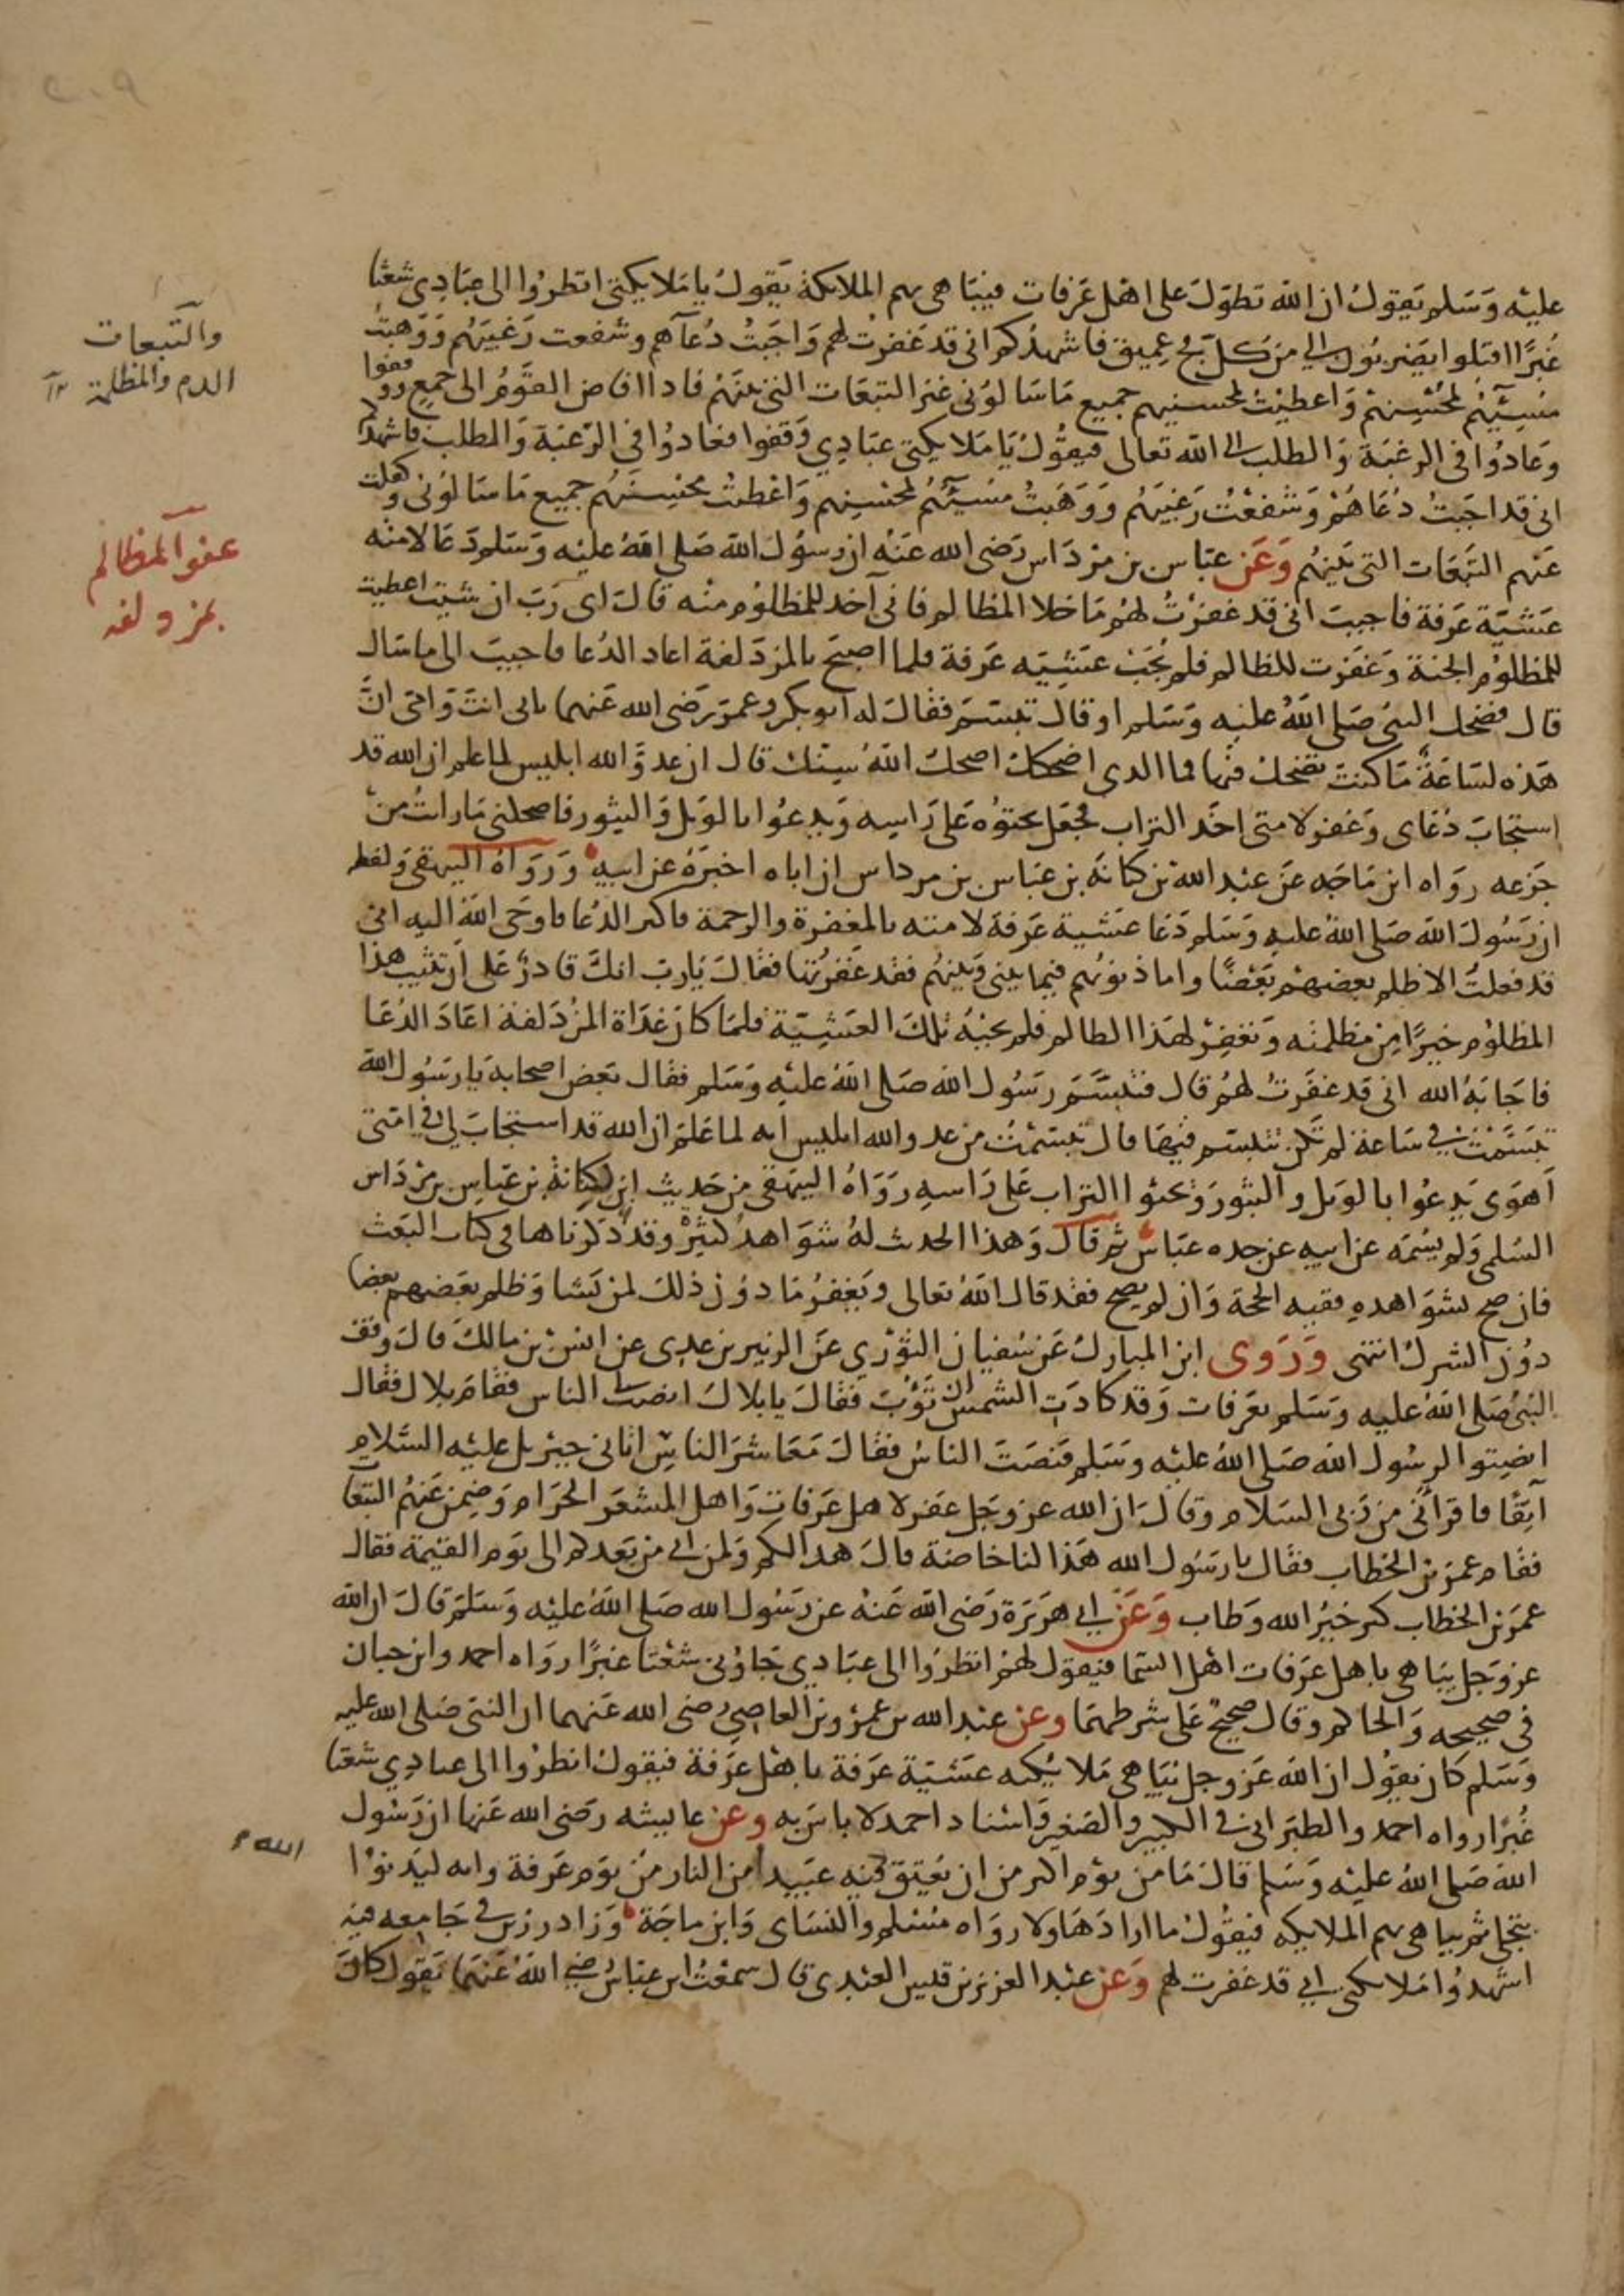 عليه وسلم يقول ان الله تطول على اهل عرفات فيباهى بهم الملائكة يقول يا ملايكتى انظروا الى عبادى شعثا
غبرا اقبلوا يضربون الي من كل فج عميق فاشهدكم انى قد غفرت لهم واجبت دعآهم وشفعت رغبتهم ووهبت
مسيئهم لمحسنهم واعطيت لمحسنيهم جميع ما سالونى غير التبعات التى بينهم فاذا افاض القوم الى جمع ووقفوا
وعادوا فى الرغبة والطلب الى الله تعالى فيقول يا ملايكتى عبادي وقفوا فعادوا فى الرغبة والطلب فاشهدكم
انى قد اجبت دعاهم وشفعت رغبتهم ووهبت مسيئهم لمحسنهم واعطيت محسنهم جميع ما سالونى وكفلت
عنهم التبعات التى بينهم وعن عباس بن مرداس رضى الله عنه ان رسول الله صلى الله عليه وسلم دعا لامته
عشية عرفة فاجيب انى قد غفرت لهم ما خلا المظالم فانى آخد للمظلوم منه قال اى رب ان شيت اعطيت
المظلوم الجنة وغفرت للظالم فلم يجب عشيته عرفة فلما اصبح بالمزدلفة اعاد الدعا فاجيب الى ما سال
قال فضحك النبى صلى الله عليه وسلم او قال تبسم فقال له ابو بكر وعمر رضى الله عنهما بابى انت وامى ان
هذه لساعة ما كنت تضحك فيها فما الذى اضحكك اضحك الله سنك قال ان عدو الله ابليس لما علم ان الله قد
استجاب دعاى وغفر لامتى اخذ التراب فجعل يحثوه على راسه ويدعوا بالويل والثبور فاضحكنى ما رايت من
جزعه رواه ابن ماجه عن عبد الله بن كنانة بن عباس بن مرداس ان اباه اخبره عن ابيه ورواه البيهقى ولفظه
ان رسول الله صلى الله عليه وسلم دعا عشية عرفة لامته بالمغفرة والرحمة فاكثر الدعا فاوحى الله اليه انى
قد فعلت الا ظلم بعضهم بعضا واما ذنوبهم فيما بينى وبينهم فقد غفرتها فقال يا رب انك قادر على ان تثيب هذا
المظلوم خيرا من مظلمته وتغفر لهذا الظالم فلم يجبه تلك العشية فلما كان غداة المزدلفة اعاد الدعا
فاجابه الله انى قد غفرت لهم قال فتبسم رسول الله صلى الله عليه وسلم فقال بعض اصحابه يا رسول الله
تبسمت في ساعة لم تكن تتبسم فيها قال تبسمت من عدو الله ابليس انه لما علم ان الله قد استجاب لي في امتى
اهوى يدعوا بالويل والثبور ويحثوا التراب على راسه رواه البيهقى من حديث ابن لكنانة بن عباس بن مرداس
السلمى ولم يسمه عن ابيه عن جده عباس ثم قال وهذا الحديث له شواهد كثيرة وقد ذكرناها فى كتاب البعث
فان صح بشواهده ففيه الحجة وان لم يصح فقد قال الله تعالى ويغفر ما دون ذلك لمن يشا وظلم بعضهم بعضا
دون الشرك انتهى وروى ابن المبارك عن سفيان الثوري عن الزبير بن عدى عن انس بن مالك قال وقف
النبى صلى الله عليه وسلم بعرفات وقد كادت الشمس ان تؤب فقال يا بلال انصت لى الناس فقام بلال فقال
انصتوا لرسول الله صلى الله عليه وسلم فنصت الناس فقال معاشر الناس اتانى جبريل عليه السلام
آنفا فاقرانى من ربى السلام وقال ان الله عز وجل غفر لاهل عرفات واهل المشعر الحرام وضمن عنهم التبعات
فقام عمر بن الخطاب فقال يا رسول الله هذا لنا خاصة قال هذا لكم ولمن اتى من بعدكم الى يوم القيمة فقال
عمر بن الخطاب كثر خير الله وطاب وعن ابي هريرة رضى الله عنه عن رسول الله صلى الله عليه وسلم قال ان الله
عز وجل يباهى باهل عرفات اهل السما فيقول لهم انظروا الى عبادي جاؤنى شعثا غبرا رواه احمد وابن حبان
فى صحيحه والحاكم وقال صحيح على شرطهما وعن عبد الله بن عمرو بن العاصي رضى الله عنهما ان النبى صلى الله عليه
وسلم كان يقول ان الله عز وجل يباهى ملايكته عشية عرفة باهل عرفة فيقول انظروا الى عبادي شعثا
غبرا رواه احمد والطبرانى في الكبير والصغير واسناد احمد لا باس به وعن عايشه رضى الله عنها ان رسول
الله صلى الله عليه وسلم قال ما من يوم اكثر من ان يعتق فيه عبيدا من النار من يوم عرفة وانه ليدنوا
يتجلى ثم يباهى بهم الملايكه فيقول ما اراد هاولا رواه مسلم والنساى وابن ماجة وزاد رزين في جامعه فيه
اشهدوا ملائكتى اني قد غفرت لهم وعن عبد العزيز بن قيس العبدى قال سمعت ابن عباس رضي الله عنهما يقول كان
والتبعات
الدم والمظلمة
عفو المظالم
بمزدلفه
الله